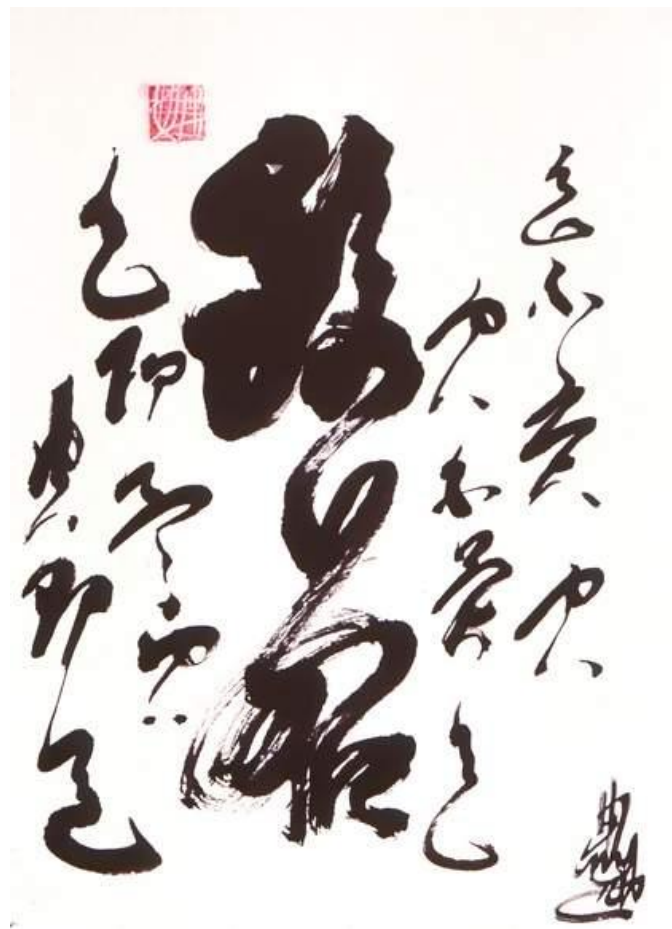 色不異空
空不異色
般若
色即是空
空即是色